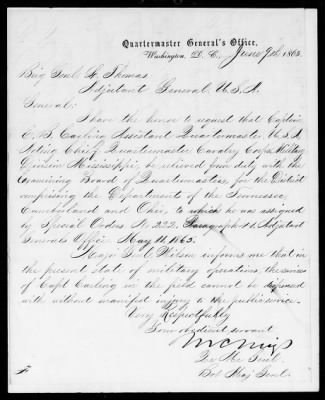 Quartermaster General's Office,
Washington, D. C., June 9th 1865.
Brig Genl L. Thomas
Adjutant General, U.S.A.
General:
I have the honor to request that Captain
E. B. Carling Assistant Quartermaster U.S.A
Acting Chief Quartermaster Cavalry Corps Military
Division Mississippi, be relieved from duty with the
Examining Board of Quartermasters, for the District
comprising the Departments of the Tennessee,
Cumberland and Ohio, to which he was assigned
by Special Orders No 222. Paragraph Adjutant
Generals Office May 11. 1865.
Major Genl Wilson informs me that in
the present state of military operations, the services
of Capt Carling in the field cannot be dispensed
with without manifest injury to the public service.
Very Respectfully
Your obedient servant
M C Meigs
Qr Mr Genl.
Bvt Maj Genl.